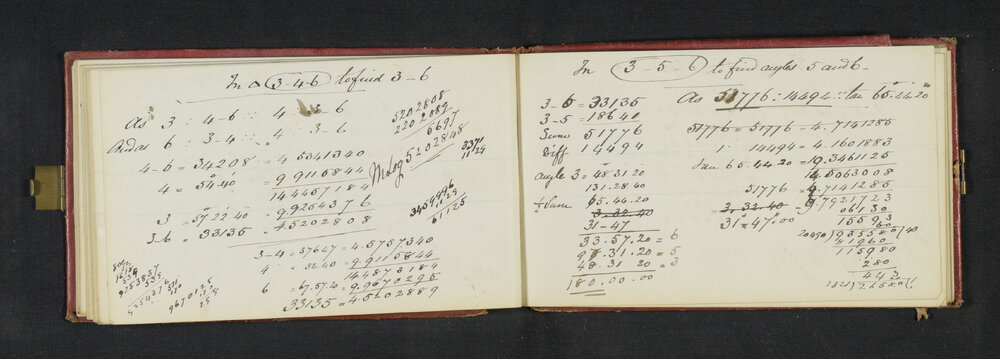 In △ 3-4-6 to find 3-6
As 3 : 4-6 :: 4 : 3-6
6 : 3-4 :: 4 : 3-6
4-6 = 34208 = 4.5341340
4 = 54.40 = 9.9115844
14.4457184
3 = 57 22 40 = 9.9254376
3-6 = 33135 = 4.5202808
3-4 = 37647 = 4.5757340
4 54.40 = 9.9115844
14.4873184
6 = 67.57.20 = 9.9670295
33135 = 4.5202889
5202808
2202889
5697
M Log 5202848
3371
11.24
3454996
61125
In 3-5-6 to find angles 5 and 6-
3-6 = 33135
3-5 = 18640
Sum 51776
Diff 14494
angle 3 = 48.31.20
131.28.40
½ Sum 65.44.20
3.32.40
31-47
33.57.20 = 6
97.31.20 = 5
48 31 20 = 3
180.00.00
As 51776 : 14494 :: tan 65.44.20
51776 = 51776 = 4.7141285
1: 14494 = 4.1601883
Tan 65.44.20 = 19.3461125
14.5063008
51776 = 4.7141285
3.32.40 = 9.7921723
31°47'.00
06130
15593
115980
280
443